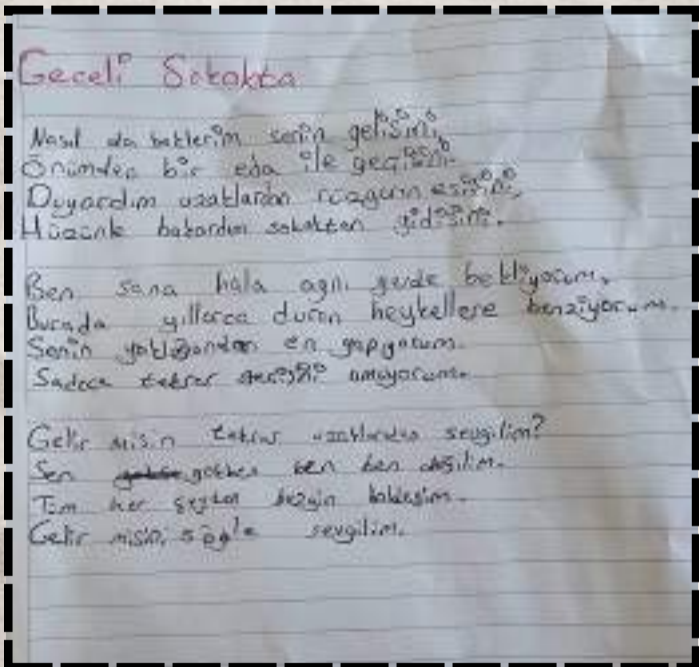 Geceli Sokakta
Nasıl da beklerim senin gelişini,
Önümden bir eda ile geçişini.
Duyardım uzaklardan rüzgarın esişini,
Hüzünle bakardım sokaktan gidişini.
Ben sana hala aynı yerde bekliyorum,
Burada yıllarca duran heykellere benziyorum.
Senin yokluğundan en yapıyorum.
Sadece tekrar umuyorum.
Gelir misin tekrar uzaklardan sevgilim?
Sen yokken ben ben değilim.
Tüm her şeyden bezgin
Gelir misin söyle sevgilim.